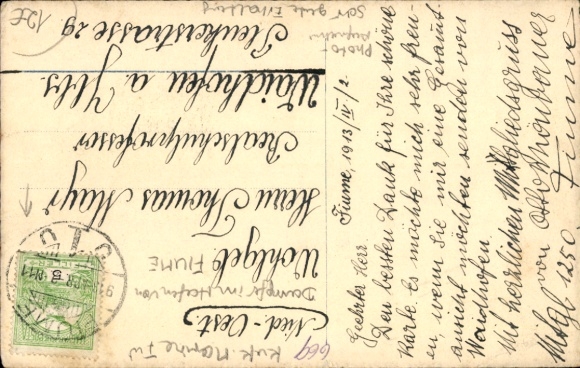 Fiume, 1913/IV/2.
Geehrter Herr
Den besten Dank für Ihre schöne
Karte. Es möchte mich sehr freu-
en, wenn Sie mir eine Gesamt-
ansicht möchten senden von
Waidhofen
Mit herzlichen Mitgliedsgruss
von Otto
Fiume
Mitgl 1250
Wohlgeb.
Herrn Thomas Mayr
Realschulprofessor
Waidhofen a Ybbs
Plenkerstrasse 29
Nied-Oest.
Dampfer im Hafen von
FIUME
K.u.K. Marine
669
Photo-
Sehr gute Erhaltung
12€
FIUME